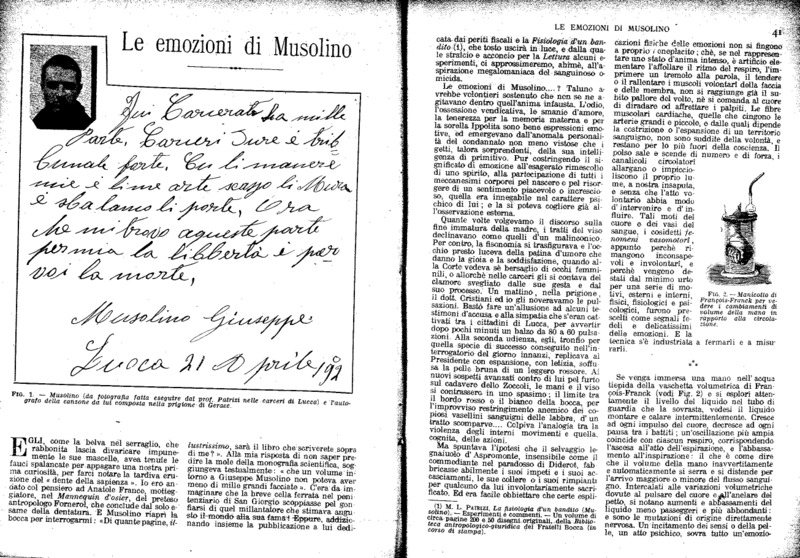 Le emozioni di Musolino
Qui Carcerato ha mille
Parte, Carceri Sure è trib
bunale forte, Cu li manere
mie è lime arte scasso li Mura
è sbalanco li porte, Ora
che mi trovo aqueste parte
permia la libbertà è per
voi la morte,
Musolino Giuseppe
Lucca 21 Aprile 192
FIG. 1. — Musolino (da fotografia fatta eseguire dal prof. Patrizi nelle carceri di Lucca) e l'auto-
grafo della canzone da lui composta nella prigione di Gerace.
EGLI, come la belva nel serraglio, che
rabbonita lascia divaricare impune-
mente le sue mascelle, avea tenute le
fauci spalancate per appagare una nostra pri-
ma curiosità, per farci notare la tardiva eru-
zione del « dente della sapienza ». Io ero an-
dato col pensiero ad Anatole France, motteg-
giatore, nel Mannequin d'osier, del preteso
antropologo Fornerol, che conclude dal solo e-
same della dentatura. E Musolino riaprì la
bocca per interrogarmi: «Di quante pagine, il-
lustrissimo, sarà il libro che scriverete sopra
di me? ». Alla mia risposta di non saper pre-
dire la mole della monografia scientifica, sog-
giungeva testualmente: « che un volume in-
torno a Giuseppe Musolino non poteva aver
meno di mille grandi facciate ». C'era da im-
maginare che la breve cella ferrata nel peni-
tenziario di San Giorgio scoppiasse pel gon-
fiarsi di quel millantatore che stimava angu-
sto il mondo alla sua fama! Eppure, addizio-
nando insieme la pubblicazione a lui dedi-
LE EMOZIONI DI MUSOLINO
41
cata dai periti fiscali e la Fisiologia d'un ban-
dito (1), che tosto uscirà in luce, e dalla qua-
le stralcio e acconcio per la Lettura alcuni e-
sperimenti, ci approssimeremo, ahimè, all'a-
spirazione megalomaniaca del sanguinoso o-
micida.
Le emozioni di Musolino....? Taluno a-
vrebbe volontieri sostenuto che non se ne a-
gitavano dentro quell'anima infausta. L'odio,
l'ossessione vendicativa, le smanie d'amore,
la tenerezza per la memoria materna e per
la sorella Ippolita sono bene espressioni emo-
tive, ed emergevano dall'anomala personali-
tà del condannato non meno vistose che i
getti, talora sorprendenti, della sua intelli-
genza di primitivo. Pur costringendo il si-
gnificato di emozione all'esagerato rimescolìo
di uno spirito, alla partecipazione di tutti i
meccanesimi corporei pel nascere e pel risor-
gere di un sentimento piacevole o increscio-
so, quella era innegabile nel carattere psi-
chico di lui; e la si poteva cogliere già al-
l'osservazione esterna.
Quante volte volgevamo il discorso sulla
fine immatura della madre, i tratti del viso
declinavano come quelli d'un malinconico.
Per contro, la fisonomia si trasfigurava e l'oc-
chio presto luceva della patina d'umore che
danno la gioia e la soddisfazione, quando al-
la Corte vedeva sè bersaglio di occhi femmi-
nili, o allorchè nelle carceri gli si contava del
clamore svegliato dalle sue gesta e dal
suo processo. Un mattino, nella prigione,
il dott. Cristiani ed io gli noveravamo le pul-
sazioni. Bastò fare un'allusione ad alcuni te-
stimoni d'accusa e alla simpatia che s'eran cat-
tivati tra i cittadini di Lucca, per avvertir
dopo pochi minuti un balzo da 80 a 60 pulsa-
zioni. Alla seconda udienza, egli, tronfio per
quella specie di successo conseguito nell'in-
terrogatorio del giorno innanzi, replicava al
Presidente con espansione, con letizia, soffu-
sa la pelle bruna di un leggero rossore. Ai
nuovi sospetti avanzati contro di lui pel furto
sul cadavere dello Zoccoli, le mani e il viso
si contrassero in uno spasimo; il limite tra
il bordo rosso e il bianco della bocca, per
l'improvviso restringimento anemico dei co-
piosi vasellini sanguigni delle labbra, d'un
tratto scomparve.... Colpiva l'analogia tra la
violenza degli interni movimenti e quella,
cognita, delle azioni.
Ma spuntava l'ipotesi che il selvaggio le-
gnaiuolo d'Aspromonte, insensibile come il
commediante nel paradosso di Diderot, fab-
bricasse abilmente i suoi impeti e i suoi ac-
casciamenti, le sue collere o i suoi rimpianti
per qualcuno da lui involontariamente sacri-
ficato. Ed era facile obbiettare che certe espli-
(1) M. L. PATRIZI, La fisiologia d'un bandito (Mu-
solino). — Esperimenti e commenti. — Un volume di
circa pagine 200 e 50 disegni originali, della Biblio-
teca antropologico-giuridica dei Fratelli Bocca (in
corso di stampa).
cazioni fisiche delle emozioni non si fingono
a proprio beneplacito; chè, se nel rappresen-
tare uno stato d'animo intenso, è artificio ele-
mentare l'affollare il ritmo del respiro, l'im-
primere un tremolo alla parola, il tendere
o il rallentare i muscoli volontari della faccia
e delle membra, non si raggiunge già il su-
bito pallore del volto, nè si comanda al cuore
di diradare od affrettare i palpiti. Le fibre
muscolari cardiache, quelle che cingono le
arterie grandi e piccole, e dalle quali dipende
la costrizione o l'espansione di un territorio
sanguigno, non sono suddite della volontà, e
restano per lo più fuori della coscienza. Il
polso sale e scende di numero e di forza, i
canalicoli circolatori
allargano o impicco-
liscono il proprio lu-
me, a nostra insaputa,
e senza che l'atto vo-
lontario abbia modo
d'intervenire e d'in-
fluire. Tali moti del
cuore e dei vasi del
sangue, i cosidetti fe-
nomeni vasomotori,
appunto perchè ri-
mangono inconsape-
voli e involontari, e
perchè vengono de-
stati dal minimo urto
per una serie di mo-
tivi, esterni e interni,
fisici, fisiologici e psi-
cologici, furono pre-
scelti come segnali fe-
deli e delicatissimi
delle emozioni. E la
tecnica s'è industriata a fermarli e a misu-
rarli.
FIG. 2. — Manicotto di
François-Franck per ve-
dere i cambiamenti di
volume della mano in
rapporto alla circola-
zione.
⁂
Se venga immersa una mano nell'acqua
tiepida della vaschetta volumetrica di Fran-
çois-Franck (vedi Fig. 2) e si esplori atten-
tamente il livello del liquido nel tubo di
guardia che la sovrasta, vedesi il liquido
montare e calare intermittemente. Cresce
ad ogni impulso del cuore, decresce ad ogni
pausa tra i battiti; un'oscillazione più ampia
coincide con ciascun respiro, corrispondendo
l'ascesa all'atto dell'espirazione, e l'abbassa-
mento all'inspirazione: il che è come dire
che il volume della mano inavvertitamente
e automaticamente si serra e si distende per
l'arrivo maggiore o minore del flusso sangui-
gno. Intercalati alle variazioni volumetriche
dovute al pulsare del cuore e all'anelare del
petto, si notano aumenti e abbassamenti del
liquido meno passeggeri e più abbondanti:
e sono le mutazioni di origine direttamente
nervosa. Un incitamento dei sensi o della pel-
le, un atto psichico, sovra tutto un'emozio-